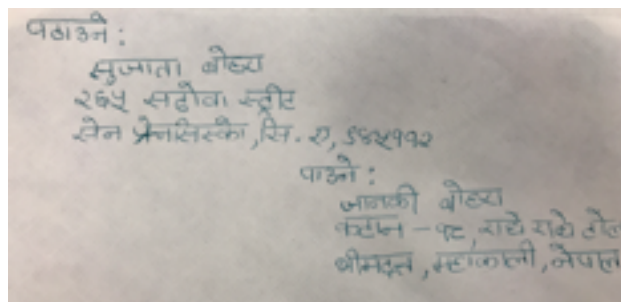 पठाउने :
सुजाता बोहरा
२६५ सढोवा स्ट्रीट
सेन फ्रेनसिस्को, सि. ए, ९४५११२
पाउने :
जानकी बोहरा
कटान - १८, राधे राधे टोल
भीमदत्त, महाकाली, नेपाल